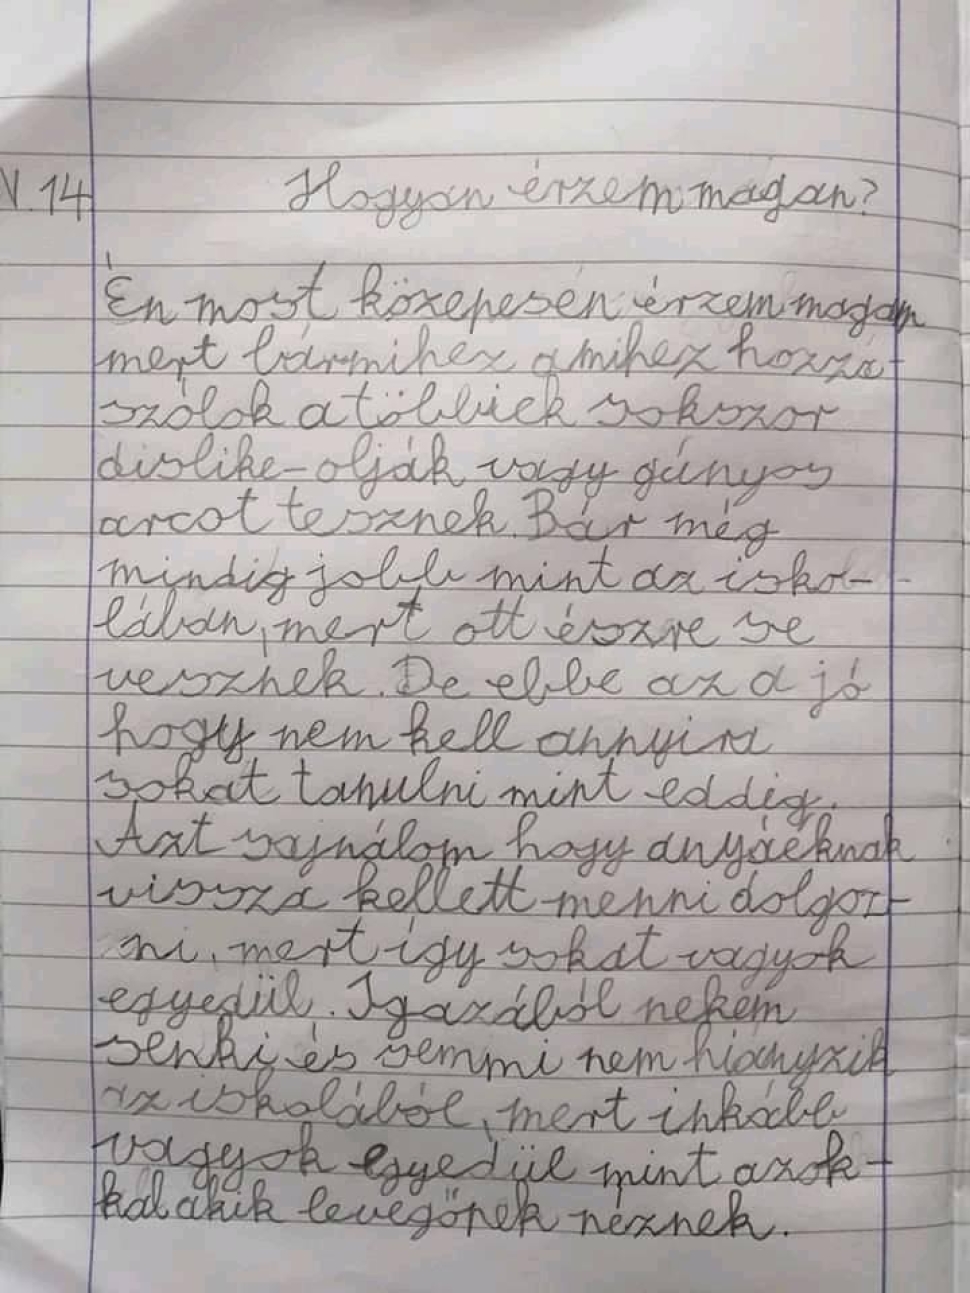 V. 14 Hogyan érzem magan?
Én most közepesen érzem magam
mert bármihez amihez hozzá-
szólok a többiek sokszor
dislike-olják vagy gúnyos
arcot tesznek. Bár még
mindig jobb mint az isko-
lában, mert ott észre se
vesznek. De ebbe az a jó
hogy nem kell annyira
sokat tanulni mint eddig.
Azt sajnálom hogy anyáéknak
vissza kellett menni dolgoz-
ni, mert így sokat vagyok
egyedül. Igazából nekem
senki és semmi nem hiányzik
az iskolából, mert inkább
vagyok egyedül mint azok-
kal akik levegőnek néznek.